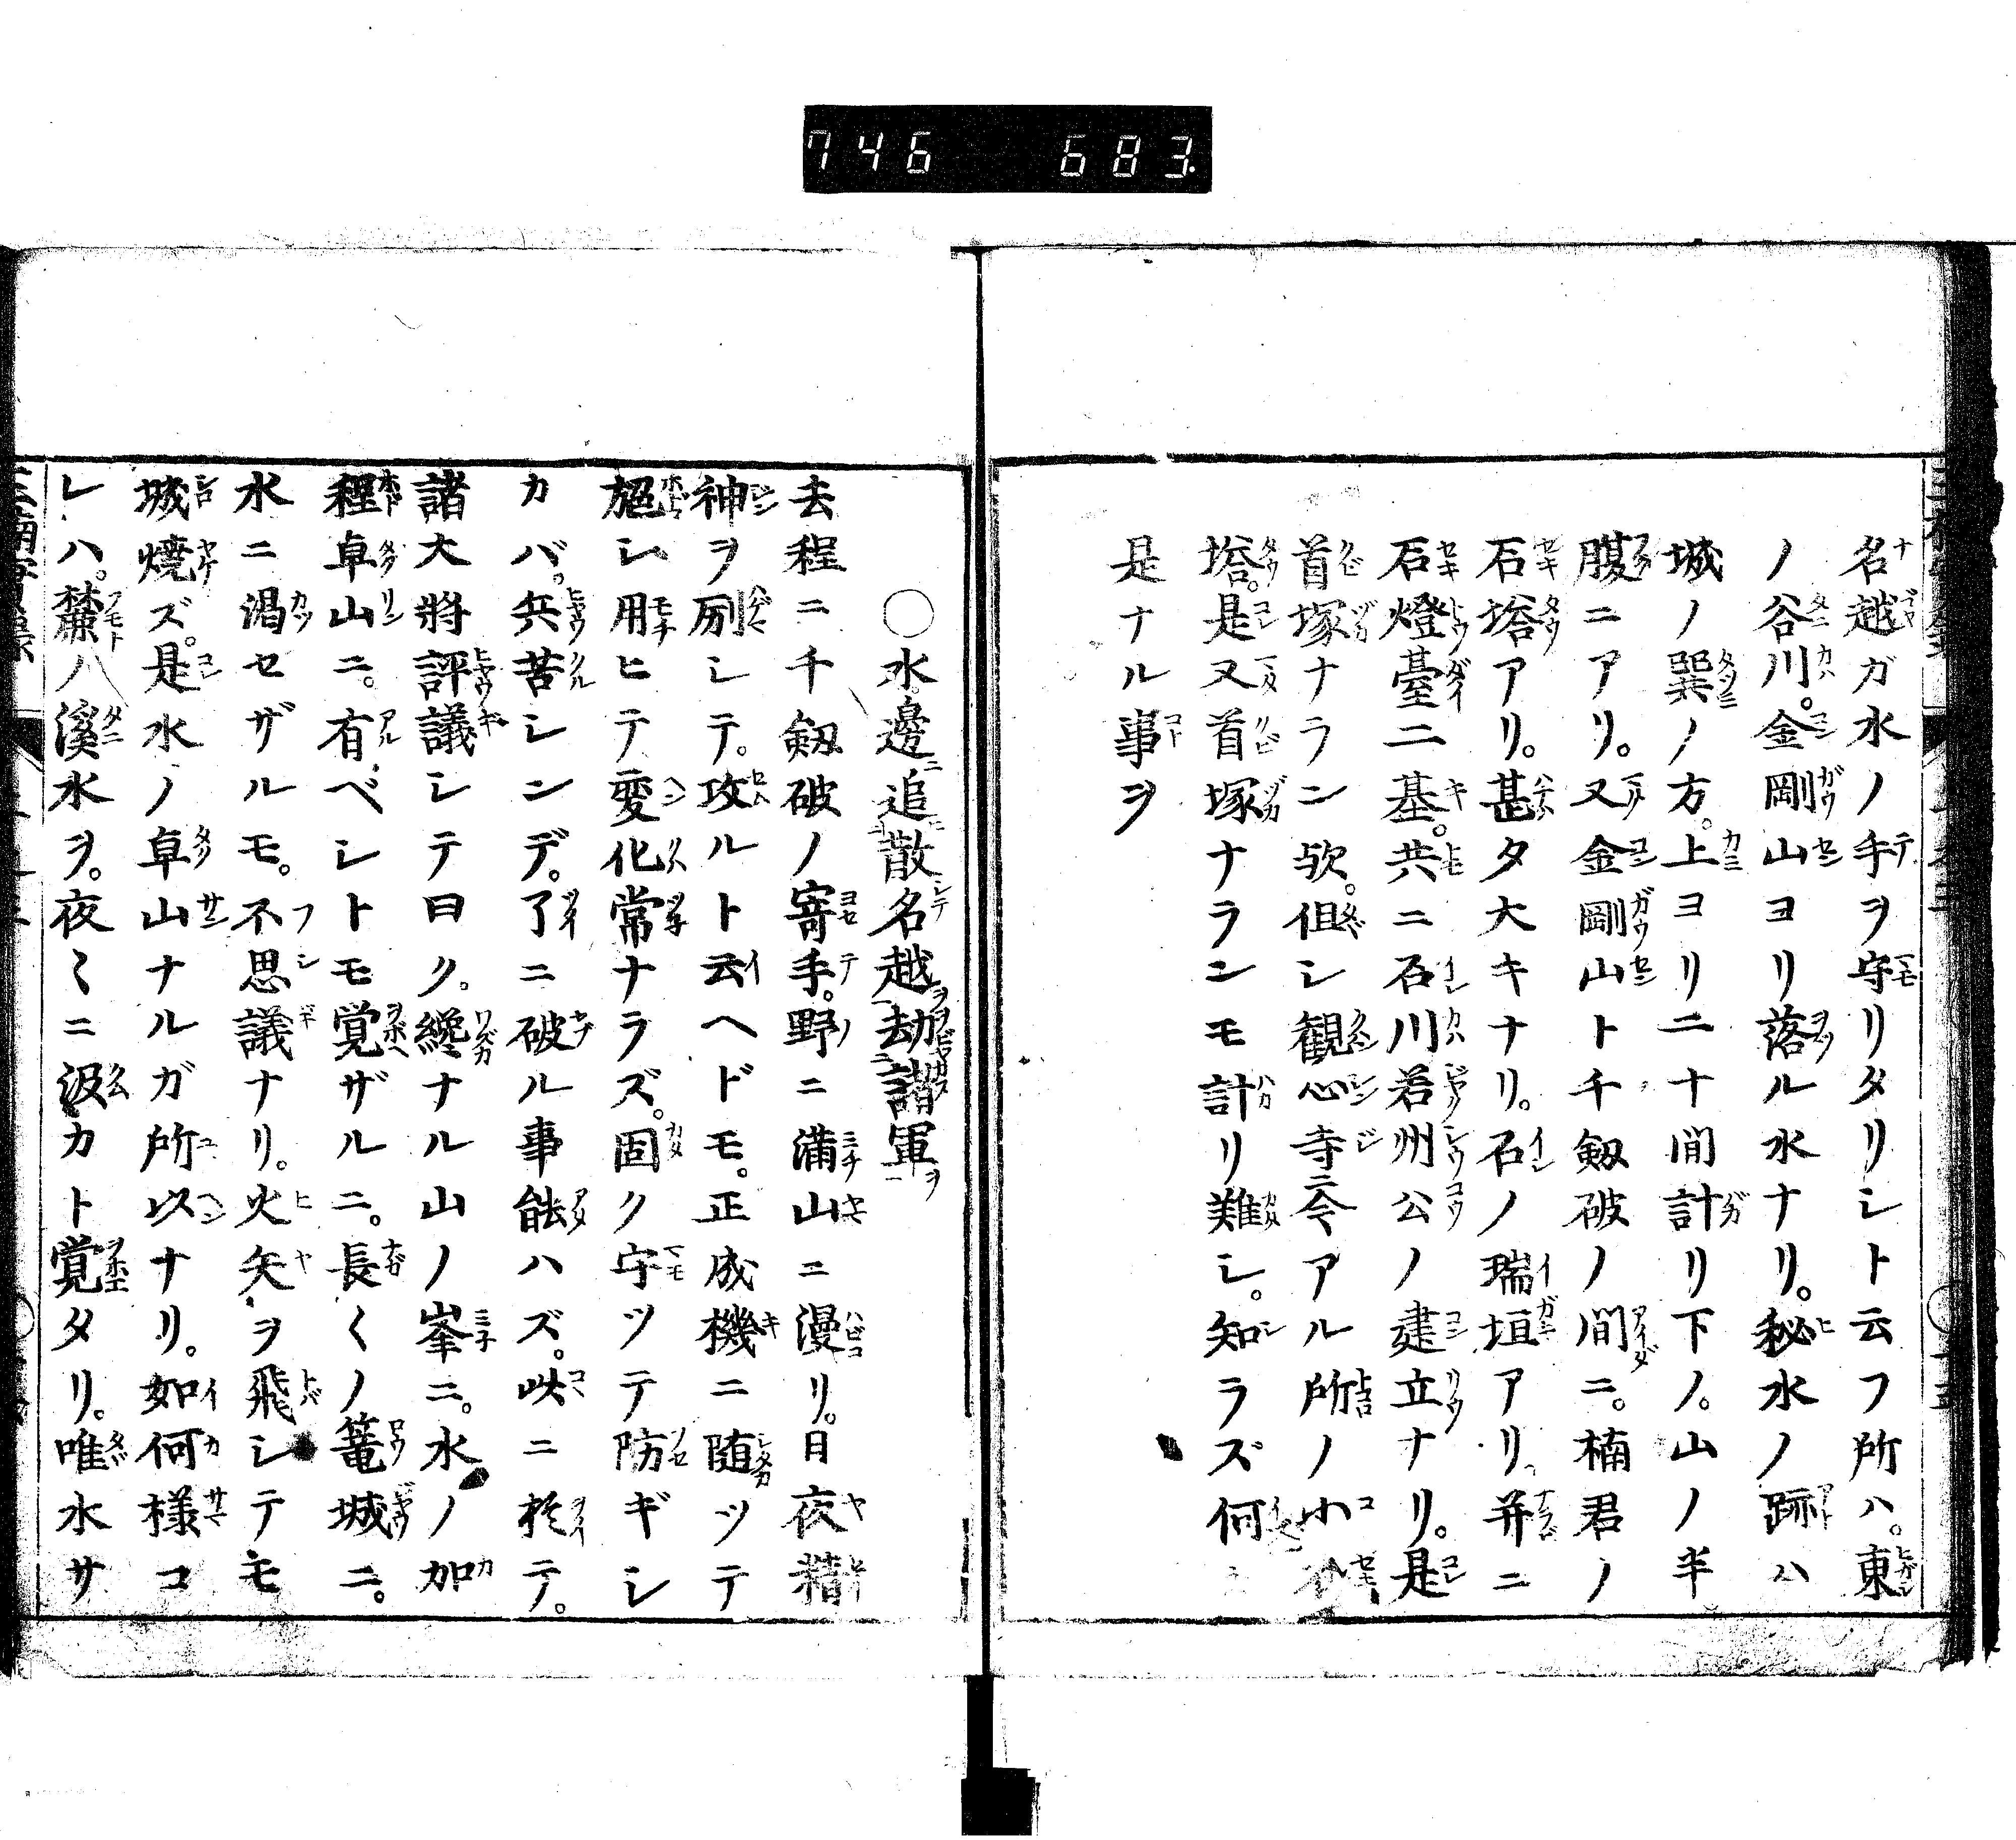 746 683.
名越ガ水ノ手ヲ守リタリシト云フ所ハ。東
ノ谷川。金剛山ヨリ落ル水ナリ。秘水ノ跡ハ
城ノ巽ノ方。上ヨリ二十間計リ下ノ。山ノ半
腹ニアリ。又金剛山ト千剱破ノ間ニ。楠君ノ
石塔アリ。甚タ大キナリ。石ノ瑞垣アリ。并ニ
石燈臺二基。共ニ石川若州公ノ建立ナリ。是
首塚ナラン欤。但シ観心寺ニ今アル所ノ小
塔。是又首塚ナランモ計リ難シ。知ラズ何
是ナル事ヲ
○水邊ニ追散シテ名越ヲ劫諸軍ヲ
去程ニ千剱破ノ寄手。野ニ満山ニ漫リ。日夜精
神ヲ励シテ。攻ルト云ヘドモ。正成機ニ随ツテ
施シ用ヒテ変化常ナラズ。固ク守ツテ防ギシ
カバ。兵苦シンデ。了ニ破ル事能ハズ。此ニ於テ。
諸大將評議シテ曰ク。纔ナル山ノ峯ニ。水ノ加
程卓山ニ。有ベシトモ覚ザルニ。長〱ノ篭城ニ。
水ニ渇セザルモ。不思議ナリ。火矢ヲ飛シテモ
城焼ズ。是水ノ卓山ナルガ所以ナリ。如何様コ
レハ。麓ノ溪水ヲ。夜〻ニ汲カト覚タリ。唯水サ